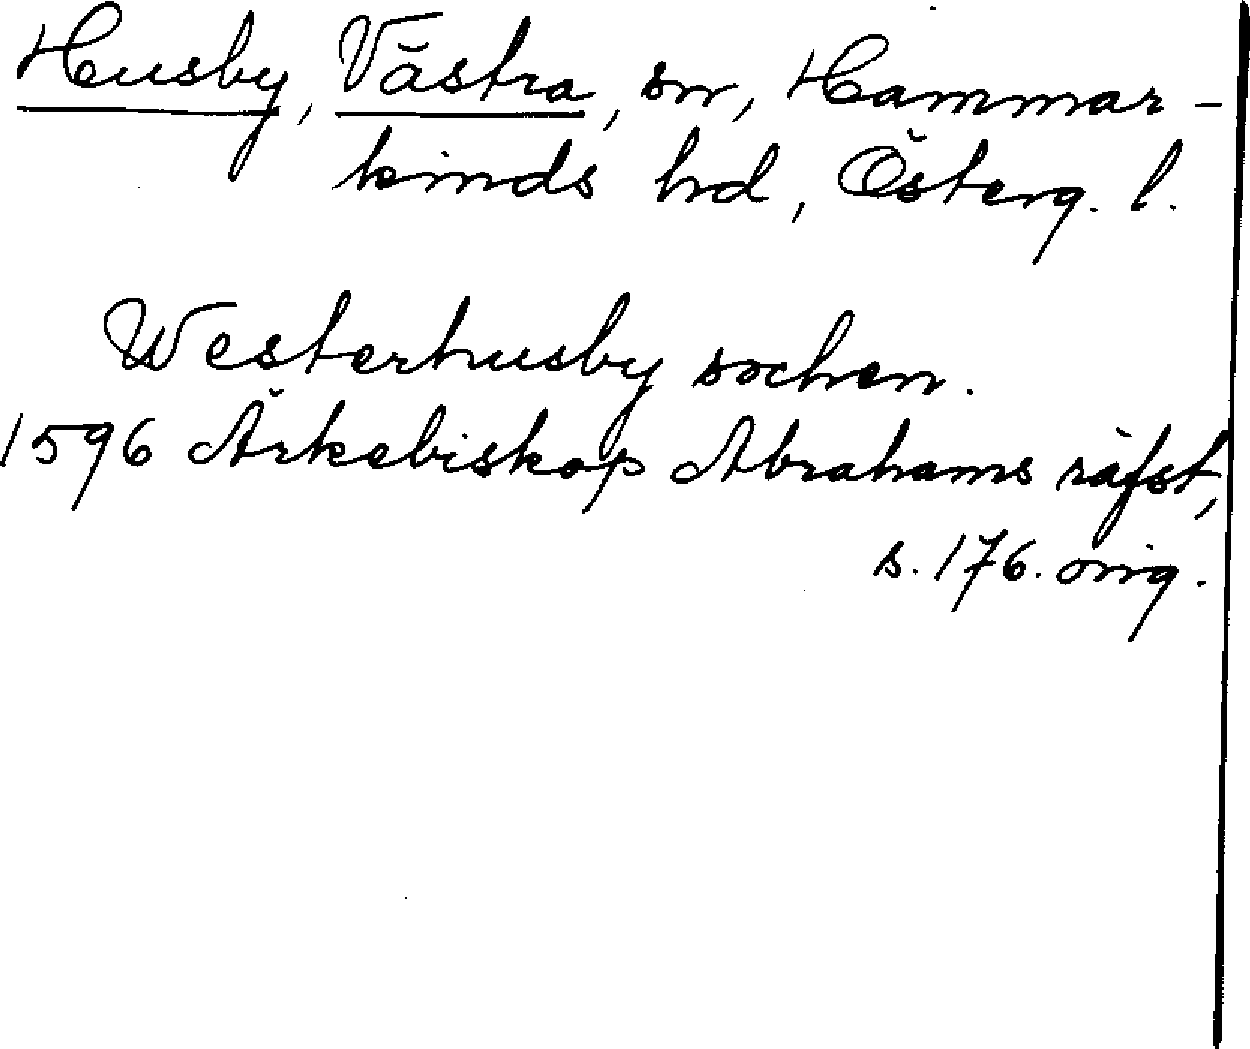 Husby, Västra, sn, Hammar-
kinds hd, Österg. l.
Westerhusby sochen.
1596 Ärkebiskop Abrahams räfst,
s. 176. orig.